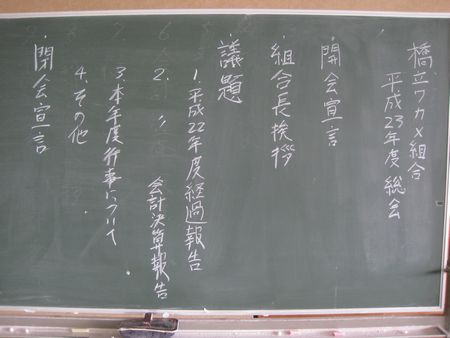 橋立ワカメ組合
平成23年度 総会
開会宣言
組合長挨拶
議題
1. 平成22年度経過報告
2. 〃 会計決算報告
3. 本年度行事について
4. その他
閉会宣言